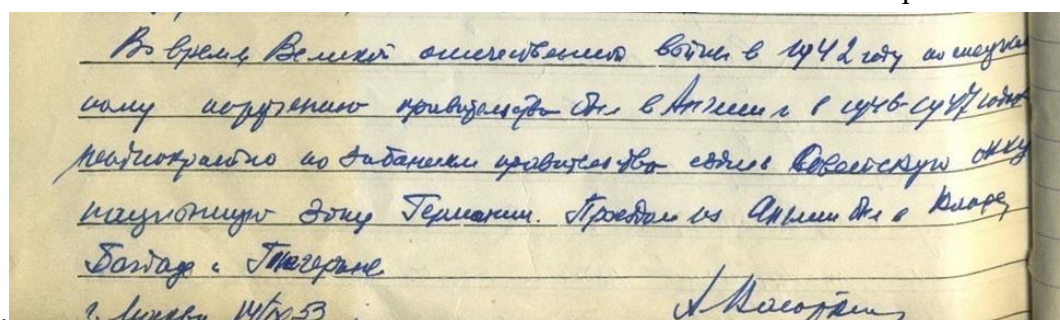 Во время Великой отечественной войны в 1942 году по специаль
ному поручению правительства был в Англии и в 1946-1947 годах
неоднократно по заданиям правительства ездил в Советскую окку
пационную зону Германии. Проездом из Англии был в Каире,
Багдаде и Тегеране
г. Москва 14/IX 53